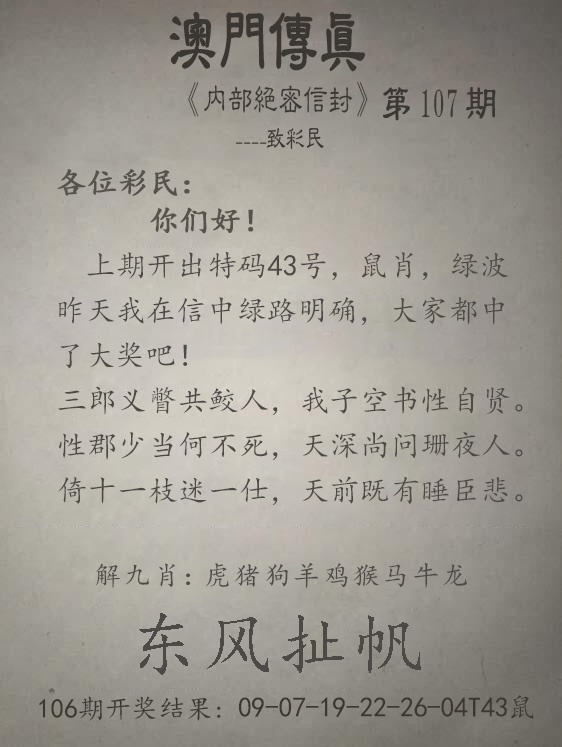 澳門傳眞
《内部絕密信封》第107期
----致彩民
各位彩民：
你们好！
上期开出特码43号，鼠肖，绿波
昨天我在信中绿路明确，大家都中
了大奖吧！
三郎义瞥共鲛人，我子空书性自贤。
性郡少当何不死，天深尚问珊夜人。
倚十一枝迷一仕，天前既有睡臣悲。
解九肖：虎猪狗羊鸡猴马牛龙
东风扯帆
106期开奖结果：09-07-19-22-26-04T43鼠